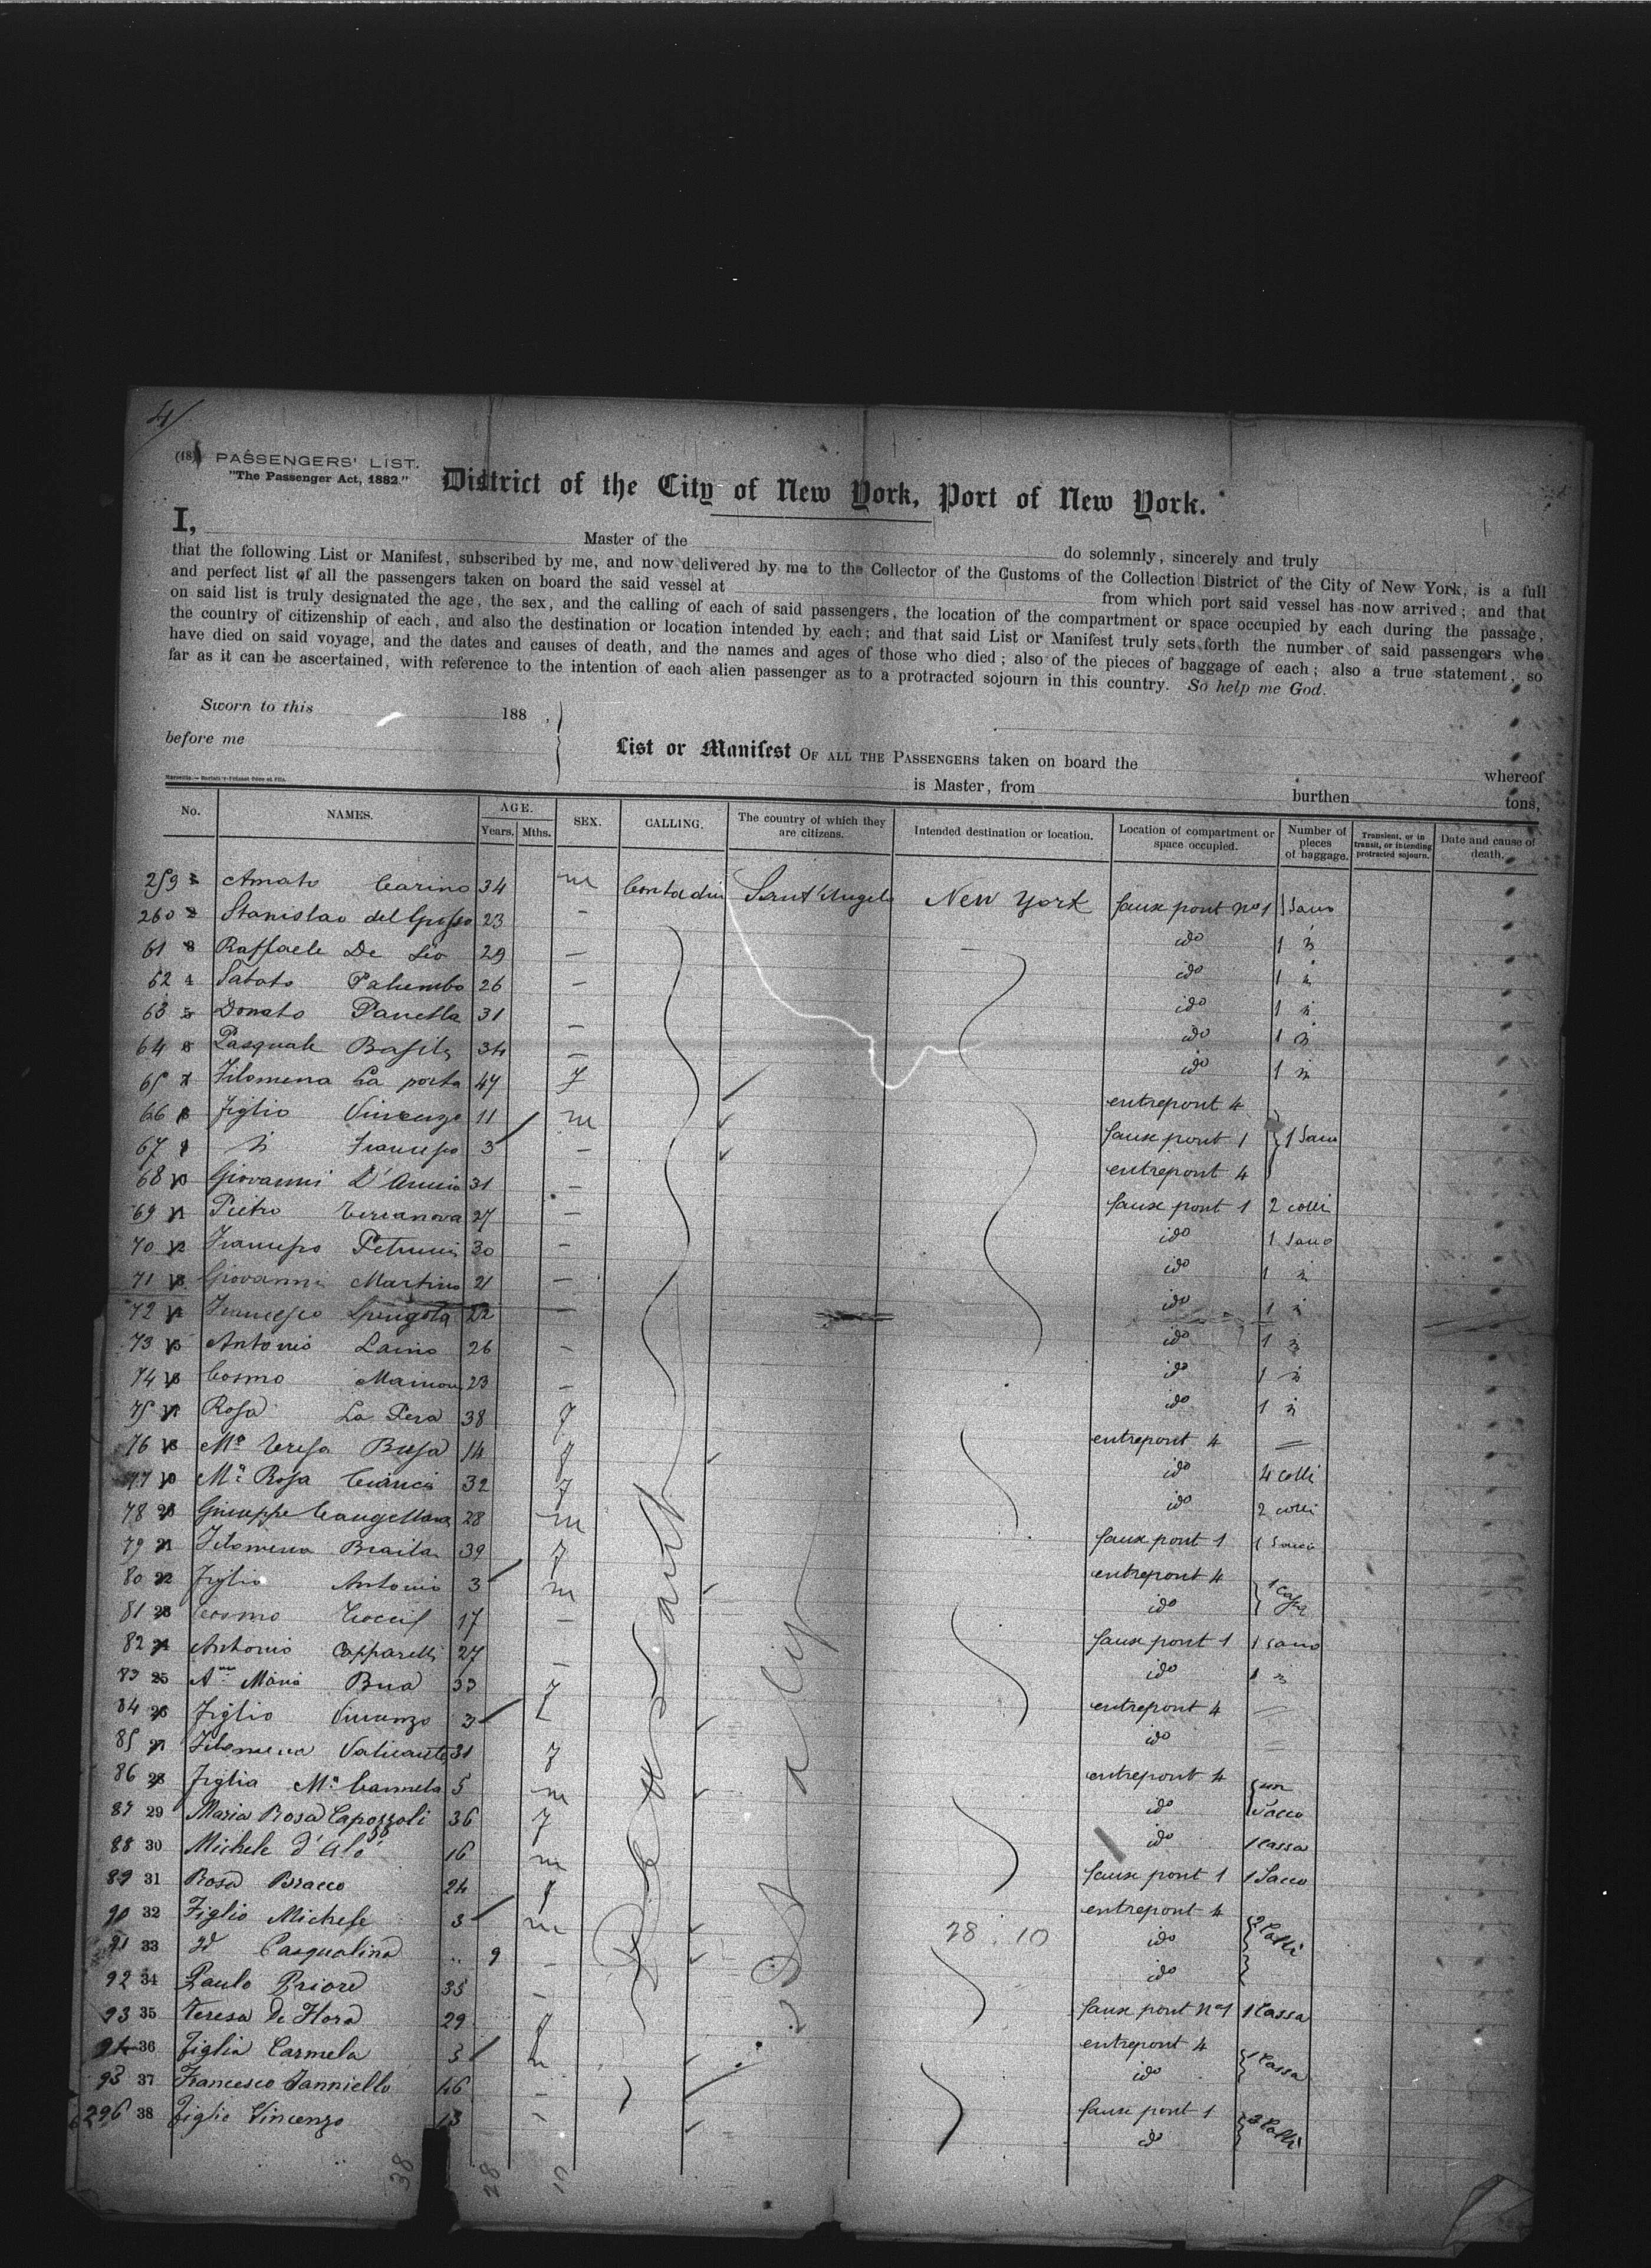 4/
(18) PASSENGERS' LIST.
"The Passenger Act, 1882."
District of the City of New York, Port of New York.
I, Master of the do solemnly, sincerely and truly
that the following List or Manifest, subscribed by me, and now delivered by me to the Collector of the Customs of the Collection District of the City of New York, is a full
and perfect list of all the passengers taken on board the said vessel at from which port said vessel has now arrived; and that
on said list is truly designated the age, the sex, and the calling of each of said passengers, the location of the compartment or space occupied by each during the passage,
the country of citizenship of each, and also the destination or location intended by each; and that said List or Manifest truly sets forth the number of said passengers who
have died on said voyage, and the dates and causes of death, and the names and ages of those who died; also of the pieces of baggage of each; also a true statement, so
far as it can be ascertained, with reference to the intention of each alien passenger as to a protracted sojourn in this country. So help me God.
Sworn to this 188 ,
before me
List or Manifest OF ALL THE PASSENGERS taken on board the whereof
is Master, from burthen tons,
No. NAMES. AGE. Years. Mths. SEX. CALLING. The country of which they are citizens. Intended destination or location. Location of compartment or space occupied. Number of pieces of baggage. Transient, or in transit, or intending protracted sojourn. Date and cause of death.
259 Amato Carino 34 m Contadin Sant Angelo New York faux pont no 1 1 Sacco
260 Stanislao del 23 – ido 1
61 Raffaele De Leo 29 – ido 1
62 4 Sabato Palumbo 26 – ido 1
63 5 Donato Panella 31 – ido 1
64 Pasquale Basile 34 – ido 1
65 7 Filomena La porta 47 f entrepont 4
66 figlio Vincenzo 11 m faux pont 1 1 Sacco
67 Francesco 3 – entrepont 4
68 10 Giovanni D'Amico 31 – faux pont 1 2 colli
69 11 Pietro Terranova 27 – ido 1 Sacco
70 12 Francesco Petrucci 30 – ido 1
71 13 Giovanni Martino 21 – ido 1
72 14 Francesco 22 – ido 1
73 15 Antonio Laino 26 – ido 1
74 16 Cosmo 23 – ido 1
75 17 Rosa La Pera 38 f entrepont 4
76 18 Ma Teresa 14 f ido 4 colli
77 19 Ma Rosa 32 f ido 2 colli
78 20 Giuseppe 28 m faux pont 1 1 Sacco
79 21 Filomena Braila 39 f entrepont 4
80 22 Figlio Antonio 3 m ido 1 Cassa
81 23 Cosmo 17 – faux pont 1 1 Sacco
82 24 Antonio Capparelli 27 – ido 1
83 25 Maria Bua 33 f entrepont 4
84 26 Figlio Vincenzo 3 ido
85 27 Filomena Valicante 31 f entrepont 4 un
86 28 figlia Ma Carmela 5 m ido Sacco
87 29 Maria Rosa Capozzoli 36 f ido 1 Cassa
88 30 Michele d'Alò 16 m faux pont 1 1 Sacco
89 31 Rosa Bracco 24 f entrepont 4
90 32 Figlio Michele 3 m 28 . 10 ido 2 Colli
91 33 id Pasqualina .. 9 – ido
92 34 Paulo Priore 35 – faux pont No 1 1 Cassa
93 35 Teresa De Flora 29 f entrepont 4
94 36 figlia Carmela 3 ido 1 Cassa
95 37 Francesco Janniello 46 – faux pont 1
296 38 figlio Vincenzo 13 – ido 2 Colli
38 28 10